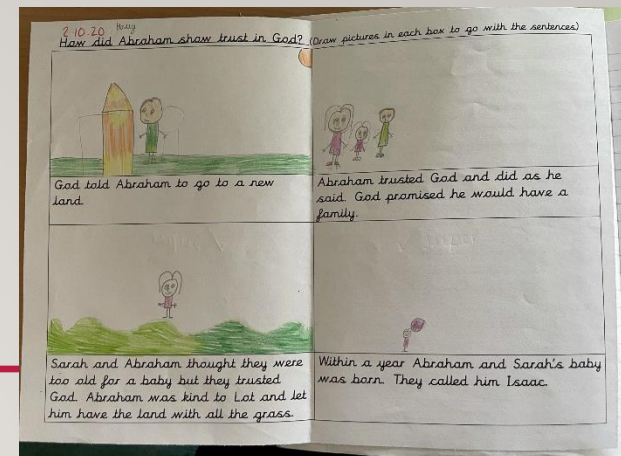 2.10.20
How did Abraham show trust in God? (Draw pictures in each box to go with the sentences)
God told Abraham to go to a new
land.
Abraham trusted God and did as he
said. God promised he would have a
family.
Sarah and Abraham thought they were
too old for a baby but they trusted
God. Abraham was kind to Lot and let
him have the land with all the grass.
Within a year Abraham and Sarah's baby
was born. They called him Isaac.